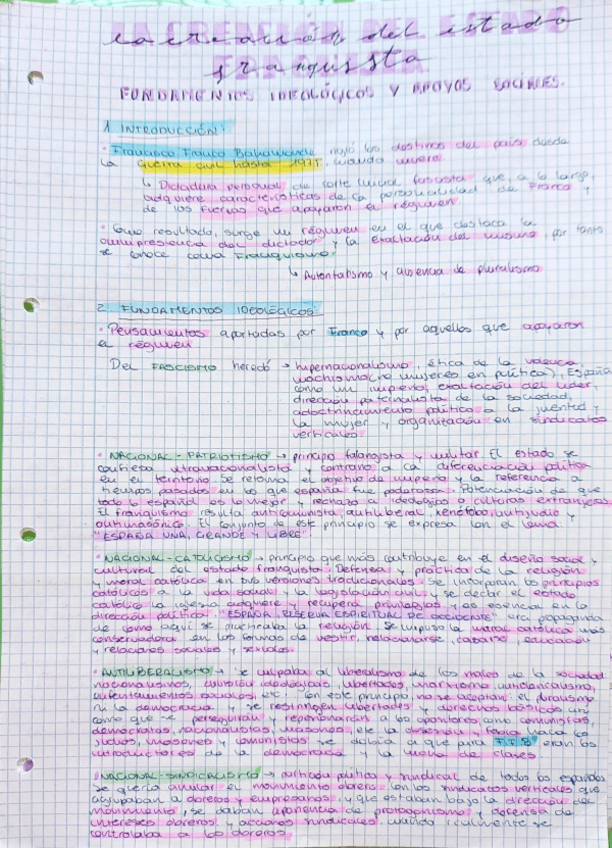 La creación del estado
franquista
FUNDAMENTOS IDEOLÓGICOS Y APOYOS SOCIALES.
1. INTRODUCCIÓN:
· Francisco Franco Bahamonde rigió los destinos del país desde
la Guerra civil hasta 1975, cuando muere.
↳ Dictadura personal de corte inicial fascista que, a lo largo,
adquiere características de la personalidad de Franco y
de las fuerzas que apoyaron el régimen.
· Como resultado, surge un régimen en el que destaca la
omnipresencia del dictador y la exaltación del mismo, por tanto
se conoce como Franquismo.
↳ Autoritarismo y ausencia de pluralismo
2. FUNDAMENTOS IDEOLÓGICOS:
· Pensamientos aportados por Franco y por aquellos que apoyaron
el régimen
Del FASCISMO heredó → hipernacionalismo, ética de la violencia,
machismo (no mujeres en política), España
como un imperio, exaltación del líder,
dirección paternalista de la sociedad,
adoctrinamiento político a la juventud y
la mujer y organización en sindicatos
verticales
· NACIONAL-PATRIOTISMO → principio falangista y militar. El estado se
confiesa ultranacionalista y contrario a la diferenciación política
en el territorio. Se retoma el objetivo de imperio y la referencia a
tiempos pasados en los que España fue poderosa. Potenciación de que
todo lo español es lo mejor y rechazo a ideologías o culturas extranjeras.
El franquismo resulta anticomunista, antiliberal, xenófobo, antijudío y
antimasónico. El conjunto de este principio se expresa con el lema
"ESPAÑA UNA, GRANDE Y LIBRE"
· NACIONAL-CATOLICISMO → principio que más contribuye en el diseño social y
cultural del estado franquista. Defensa y práctica de la religión
y moral católica en sus versiones tradicionales. Se incorporan los principios
católicos a la vida social y la legislación civil, se declara el estado
católico. La iglesia adquiere y recupera privilegios y es esencial en la
dirección política. "ESPAÑA, RESERVA ESPIRITUAL DE OCCIDENTE" era propaganda
de como aquí se practicaba la religión. Se impuso la moral católica más
conservadora en las formas de vestir, relacionarse, casarse, educación
y relaciones sociales y sexuales.
· ANTILIBERALISMO → Se culpaba al liberalismo de los males de la sociedad
nacionalismos, división ideológica, libertades, marxismo, anticlericalismo,
enfrentamientos sociales, etc. Con este principio no se aceptan el
ni la democracia y se restringen libertades y derechos básicos así
como que se perseguirán y reprimirán a los opositores como comunistas,
demócratas, nacionalistas, masones, etc. La obsesión y fobia hacia los
judíos, masones y comunistas se debía a que para F.F.B eran los
introductores de la democracia y la lucha de clases.
· NACIONAL-SINDICALISMO → política y sindical de todos los españoles
se quería anular el movimiento obrero con los sindicatos verticales que
agrupaban a obreros y empresarios, y que estaban bajo la dirección del
movimiento, se daban apariencia de protagonismo y defensa de
intereses obreros y acciones sindicales cuando realmente se
controlaba a los obreros.